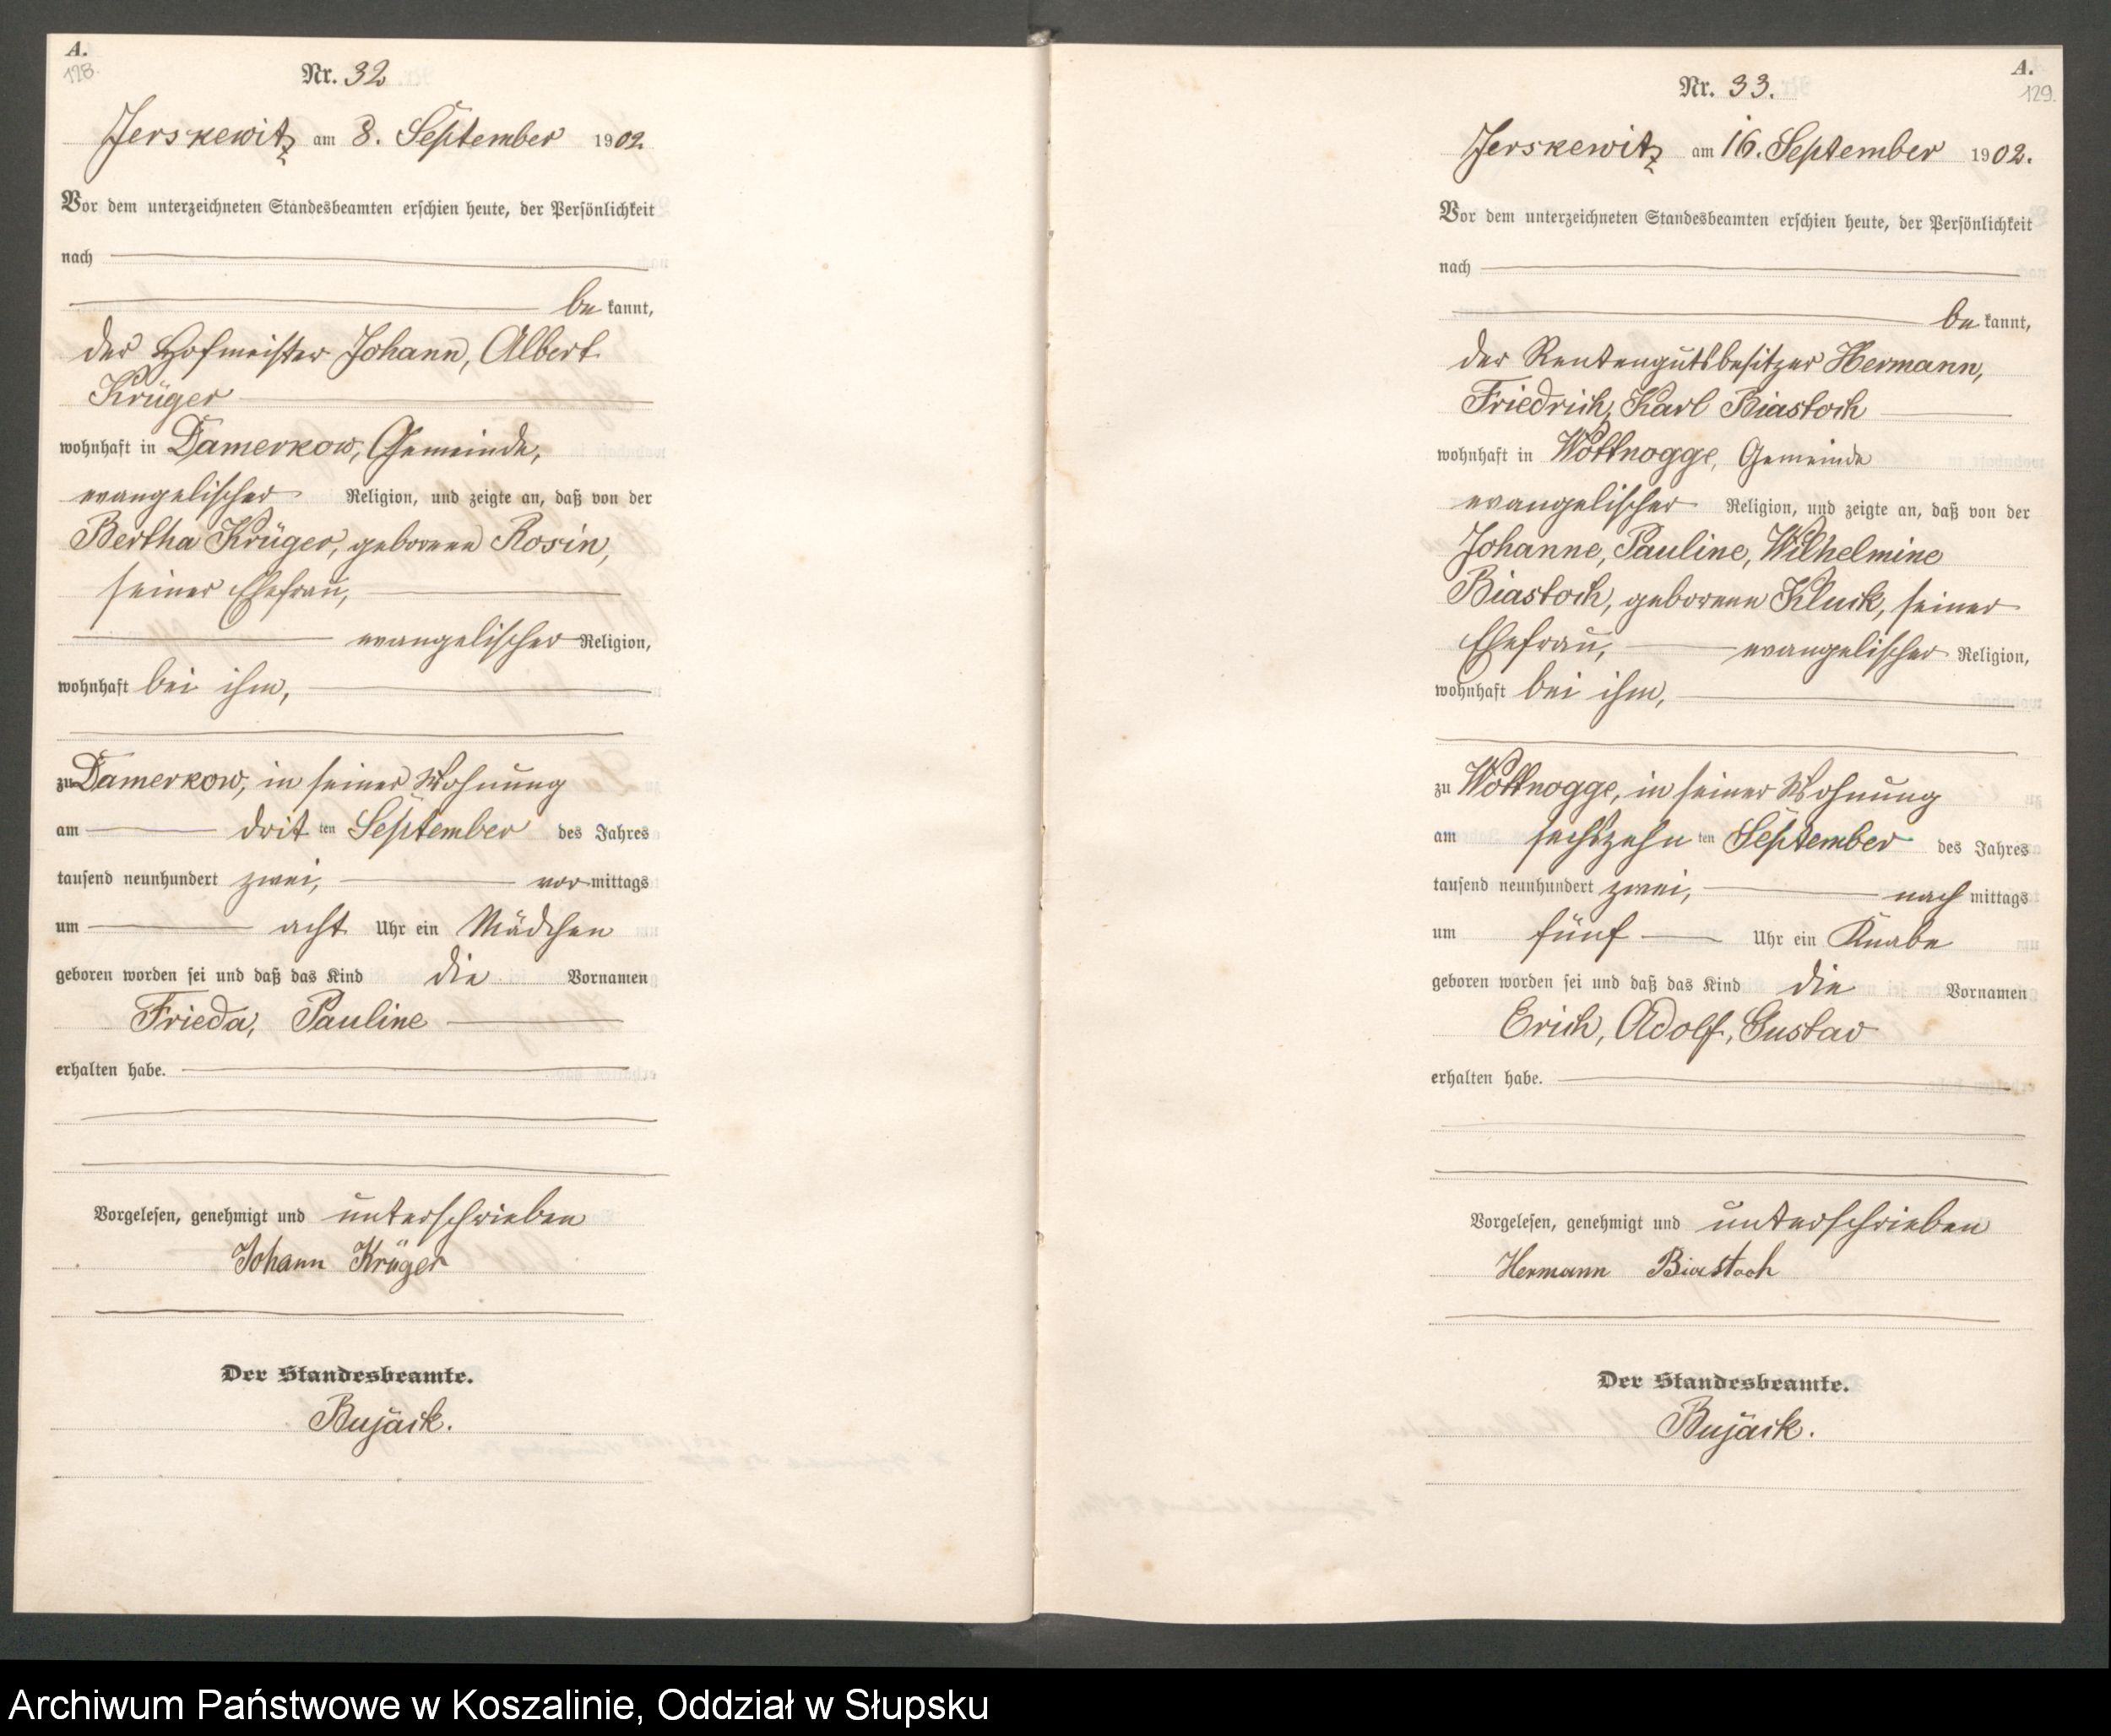 A.
128.
Nr. 32
Jerskewitz am 8. September 1902
Vor dem unterzeichneten Standesbeamten erschien heute, der Persönlichkeit
nach
be kannt,
der Hofmeister Johann, Albert
Krüger
wohnhaft in Damerkow, Gemeinde,
evangelischer Religion, und zeigte an, daß von der
Bertha Krüger, geborene Rosin,
seiner Ehefrau,
evangelischer Religion,
wohnhaft bei ihm,
zu Damerkow, in seiner Wohnung
am drit ten September des Jahres
tausend neunhundert zwei, vor mittags
um acht Uhr ein Mädchen
geboren worden sei und daß das Kind die Vornamen
Frieda, Pauline
erhalten habe.
Vorgelesen, genehmigt und unterschrieben
Johann Krüger
Der Standesbeamte.
Bujack.
A.
129.
Nr. 33.
Jerskewitz am 16. September 1902.
Vor dem unterzeichneten Standesbeamten erschien heute, der Persönlichkeit
nach
be kannt,
der Rentengutsbesitzer Hermann,
Friedrich, Karl Biastoch
wohnhaft in Wottnogge, Gemeinde
evangelischer Religion, und zeigte an, daß von der
Johanne, Pauline, Wilhelmine
Biastoch, geborene Kluck, seiner
Ehefrau, evangelischer Religion,
wohnhaft bei ihm,
zu Wottnogge, in seiner Wohnung
am sechszehn ten September des Jahres
tausend neunhundert zwei, nach mittags
um fünf Uhr ein Knabe
geboren worden sei und daß das Kind die Vornamen
Erich, Adolf, Gustav
erhalten habe.
Vorgelesen, genehmigt und unterschrieben
Hermann Biastoch
Der Standesbeamte.
Bujack.
Archiwum Państwowe w Koszalinie, Oddział w Słupsku